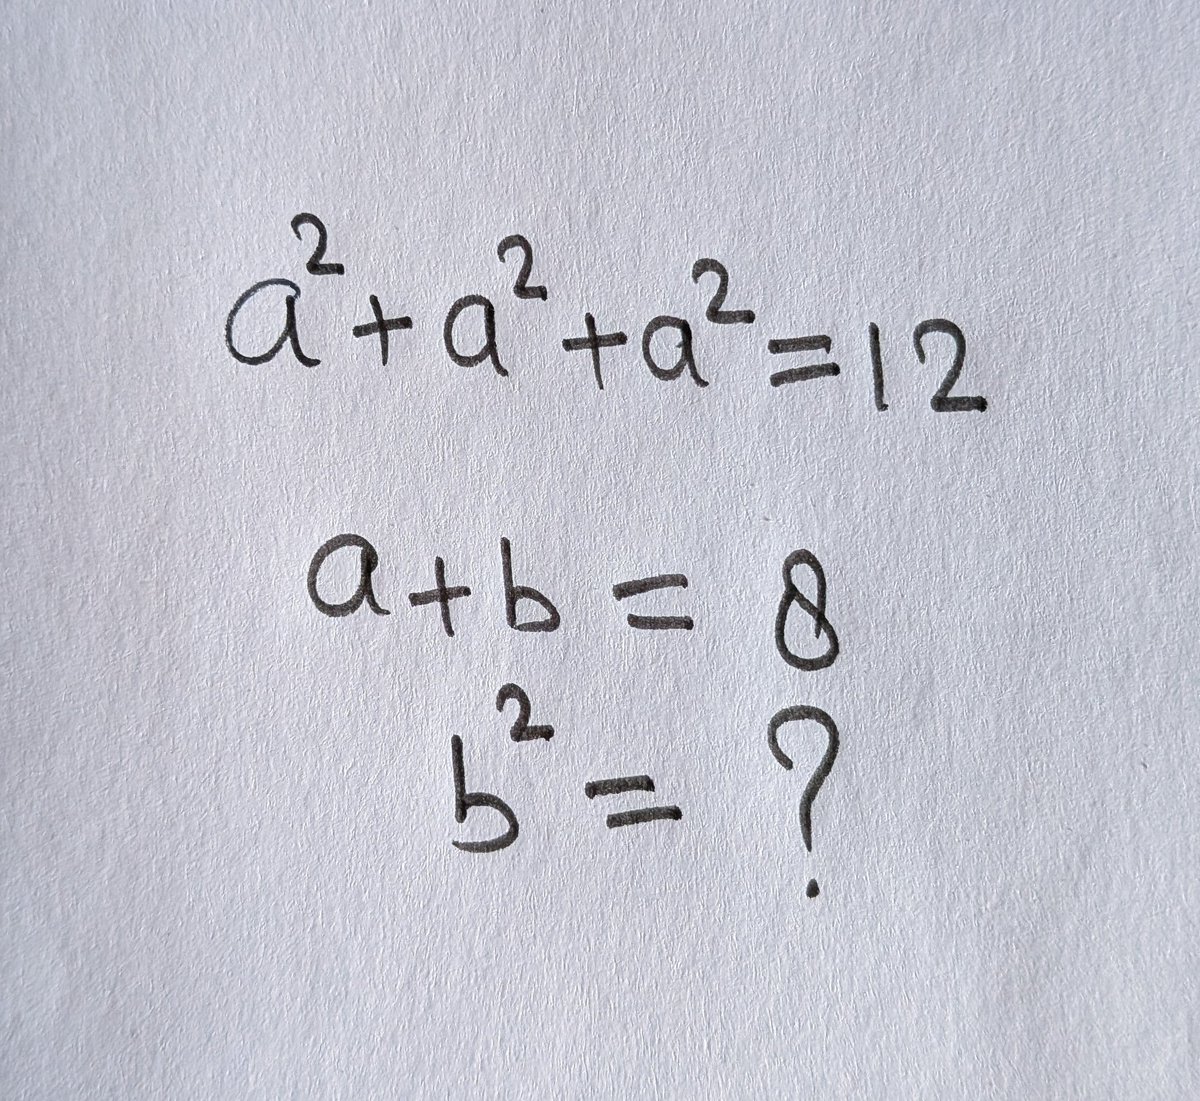 a²+a²+a²=12
a+b = 8
b² = ?